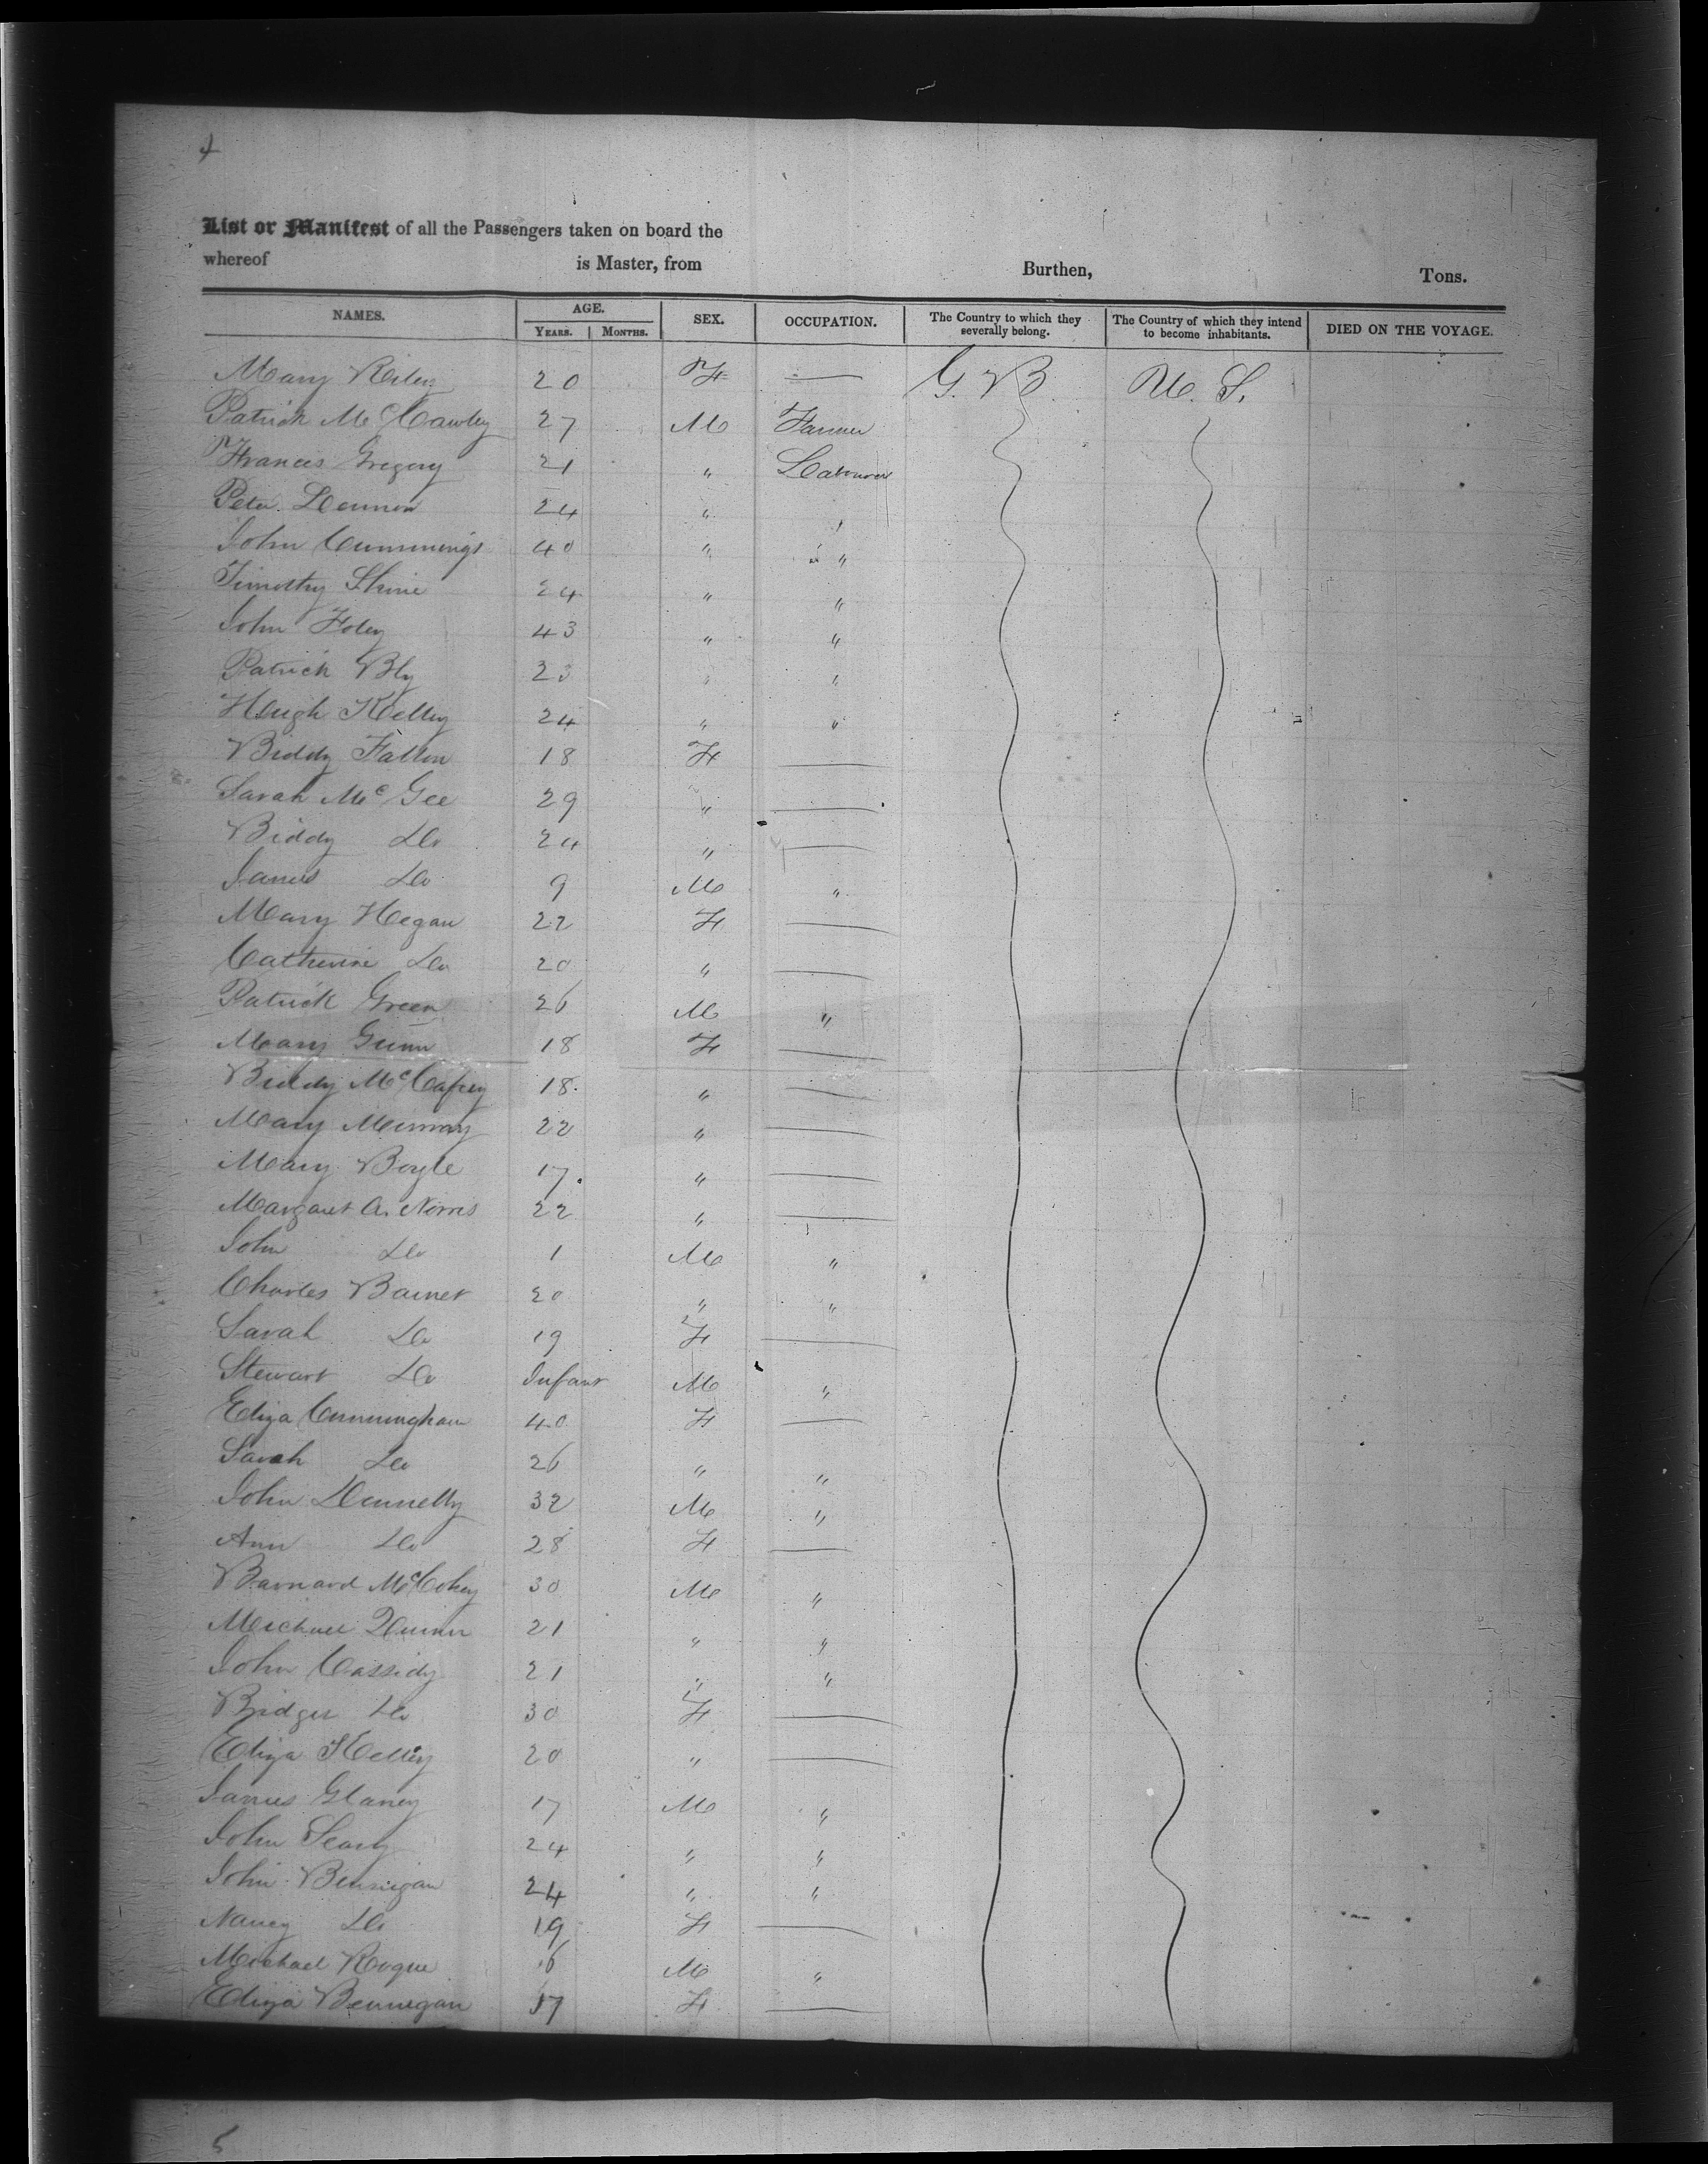 4
List or Manifest of all the Passengers taken on board the
whereof is Master, from Burthen, Tons.
NAMES. AGE. YEARS. MONTHS. SEX. OCCUPATION. The Country to which they severally belong. The Country of which they intend to become inhabitants. DIED ON THE VOYAGE.
Mary Riley 20 F — G. B. U. S.
Patrick McCawley 27 M Farmer
Francis Gregory 21 " Labourer
Peter Lennon 24 " "
John Cummings 40 " "
Timothy Shine 24 " "
John Foley 43 " "
Patrick Bly 23 " "
Hugh Kelly 24 " "
Biddy Fallon 18 F —
Sarah McGee 29 " —
Biddy Do 24 " —
James Do 9 M "
Mary Hegan 22 F —
Catherine Do 20 " —
Patrick Green 26 M "
Mary Gunn 18 F —
Biddy McCafrey 18 " —
Mary Murray 22 " —
Mary Boyle 17 " —
Margaret A. Norris 22 " —
John Do 1 M "
Charles Barnet 20 " "
Sarah Do 19 F —
Stewart Do Infant M "
Eliza Cunningham 40 F —
Sarah Do 26 " "
John Donnelly 32 M "
Ann Do 28 F —
Barnard McCohey 30 M "
Michael Quinn 21 " "
John Cassidy 21 " "
Bridget Do 30 F —
Eliza Kelley 20 " —
James Glaney 17 M "
John 24 " "
John Bennigan 24 " "
Nancy Do 19 F —
Michael Rogue 16 M "
Eliza Bennegan 17 F —
5